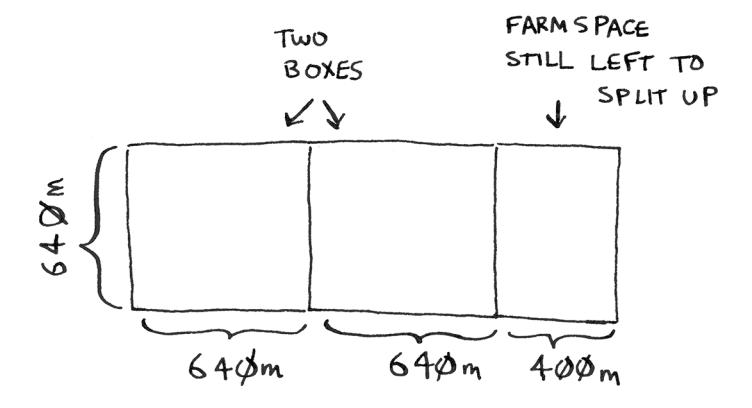 TWO
BOXES
FARM SPACE
STILL LEFT TO
SPLIT UP
640m
640m
640m
400m